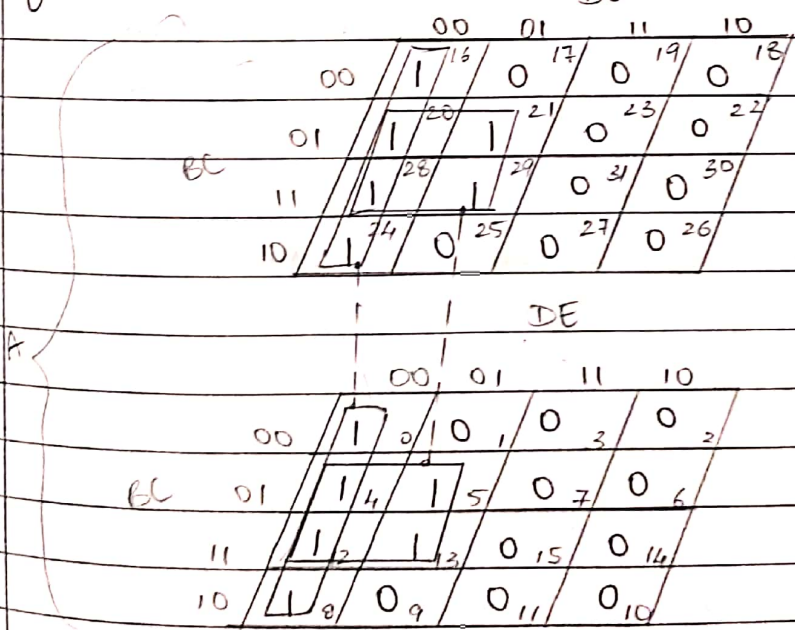 00 01 11 10
00 1 16 0 17 0 19 0 18
01 1 20 1 21 0 23 0 22
BC
11 1 28 1 29 0 31 0 30
10 1 24 0 25 0 27 0 26
DE
A
00 01 11 10
00 1 0 0 1 0 3 0 2
BC 01 1 4 1 5 0 7 0 6
11 1 12 1 13 0 15 0 14
10 1 8 0 9 0 11 0 10